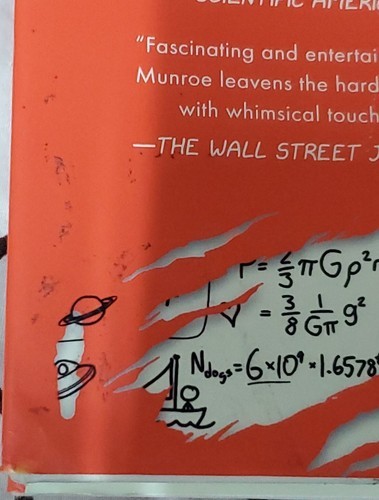 SCIENTIFIC AMERI
"Fascinating and entertai
Munroe leavens the hard
with whimsical touch
—THE WALL STREET J
= 2/3 πGρ²r
= 3/8 1/Gπ g²
N_dogs = 6×10⁹ × 1.6578